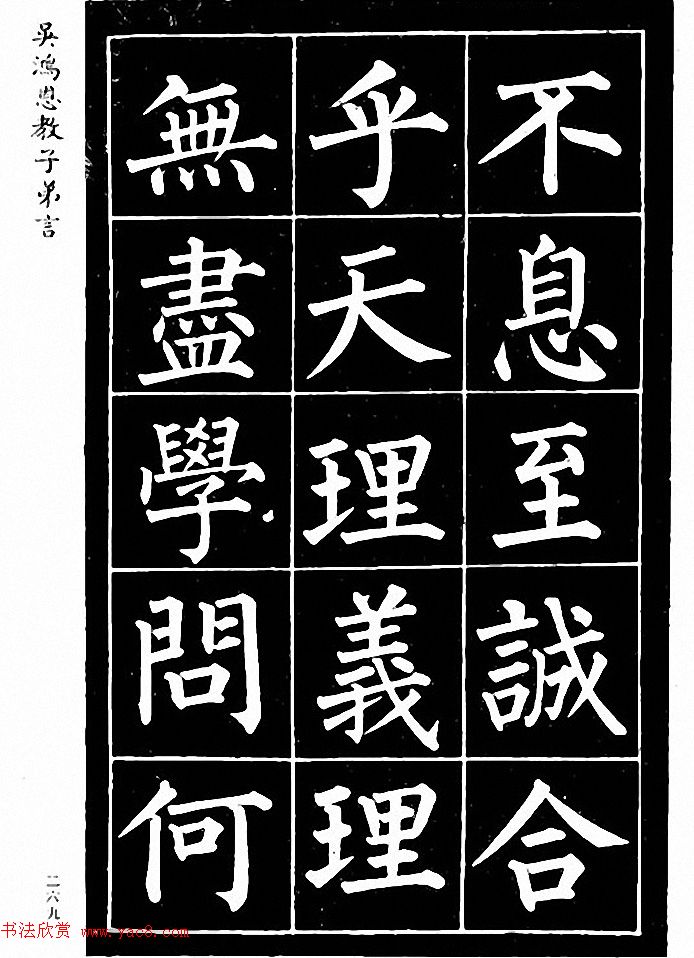 不息至誠合
乎天理義理
無盡學問何
吳鴻恩教子弟言
二六九
书法欣赏 www.yac8.com